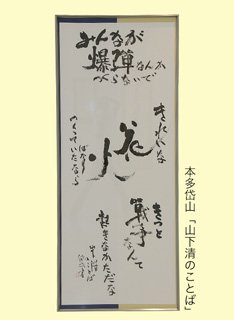 みんなが
爆弾なんか
つくらないで
きれいな
花火
ばかり
つくっていたなら
きっと
戦争なんて
起きなかったんだな
山下清
本多岱山「山下清のことば」